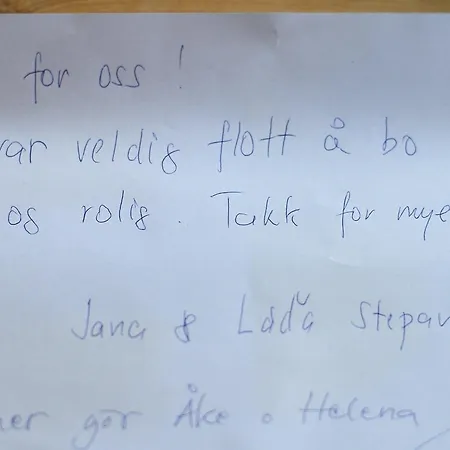 for oss !
var veldig flott å bo
og rolig. Takk for mye
Jana & Láďa Stepan
ner gör Åke o Helena